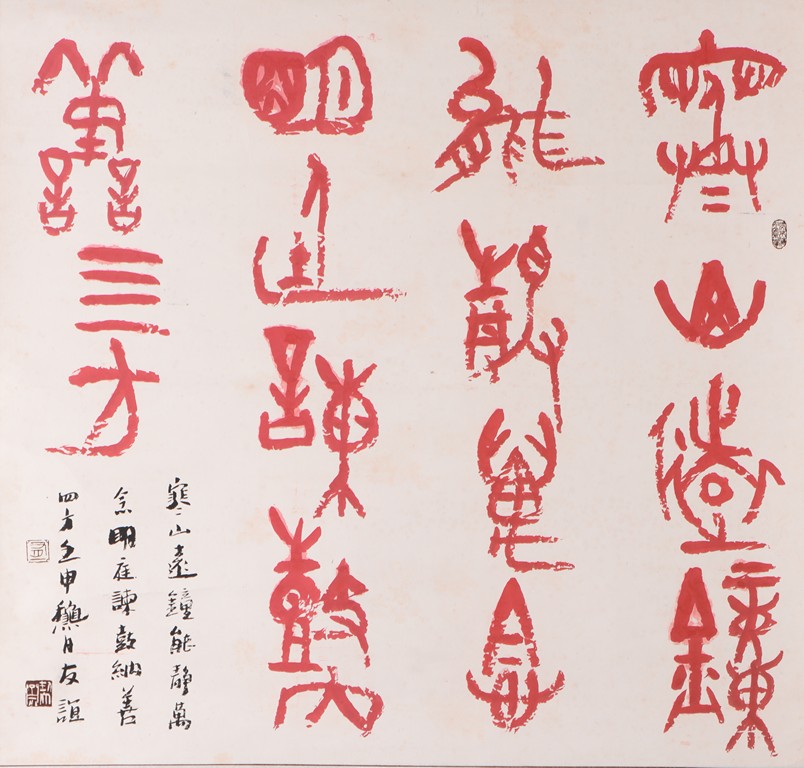 寒山遠鐘
能靜萬念
明廷諫鼓納
善四方
寒山遠鐘能靜萬
念明廷諫鼓納善
四方壬申臘月友誼